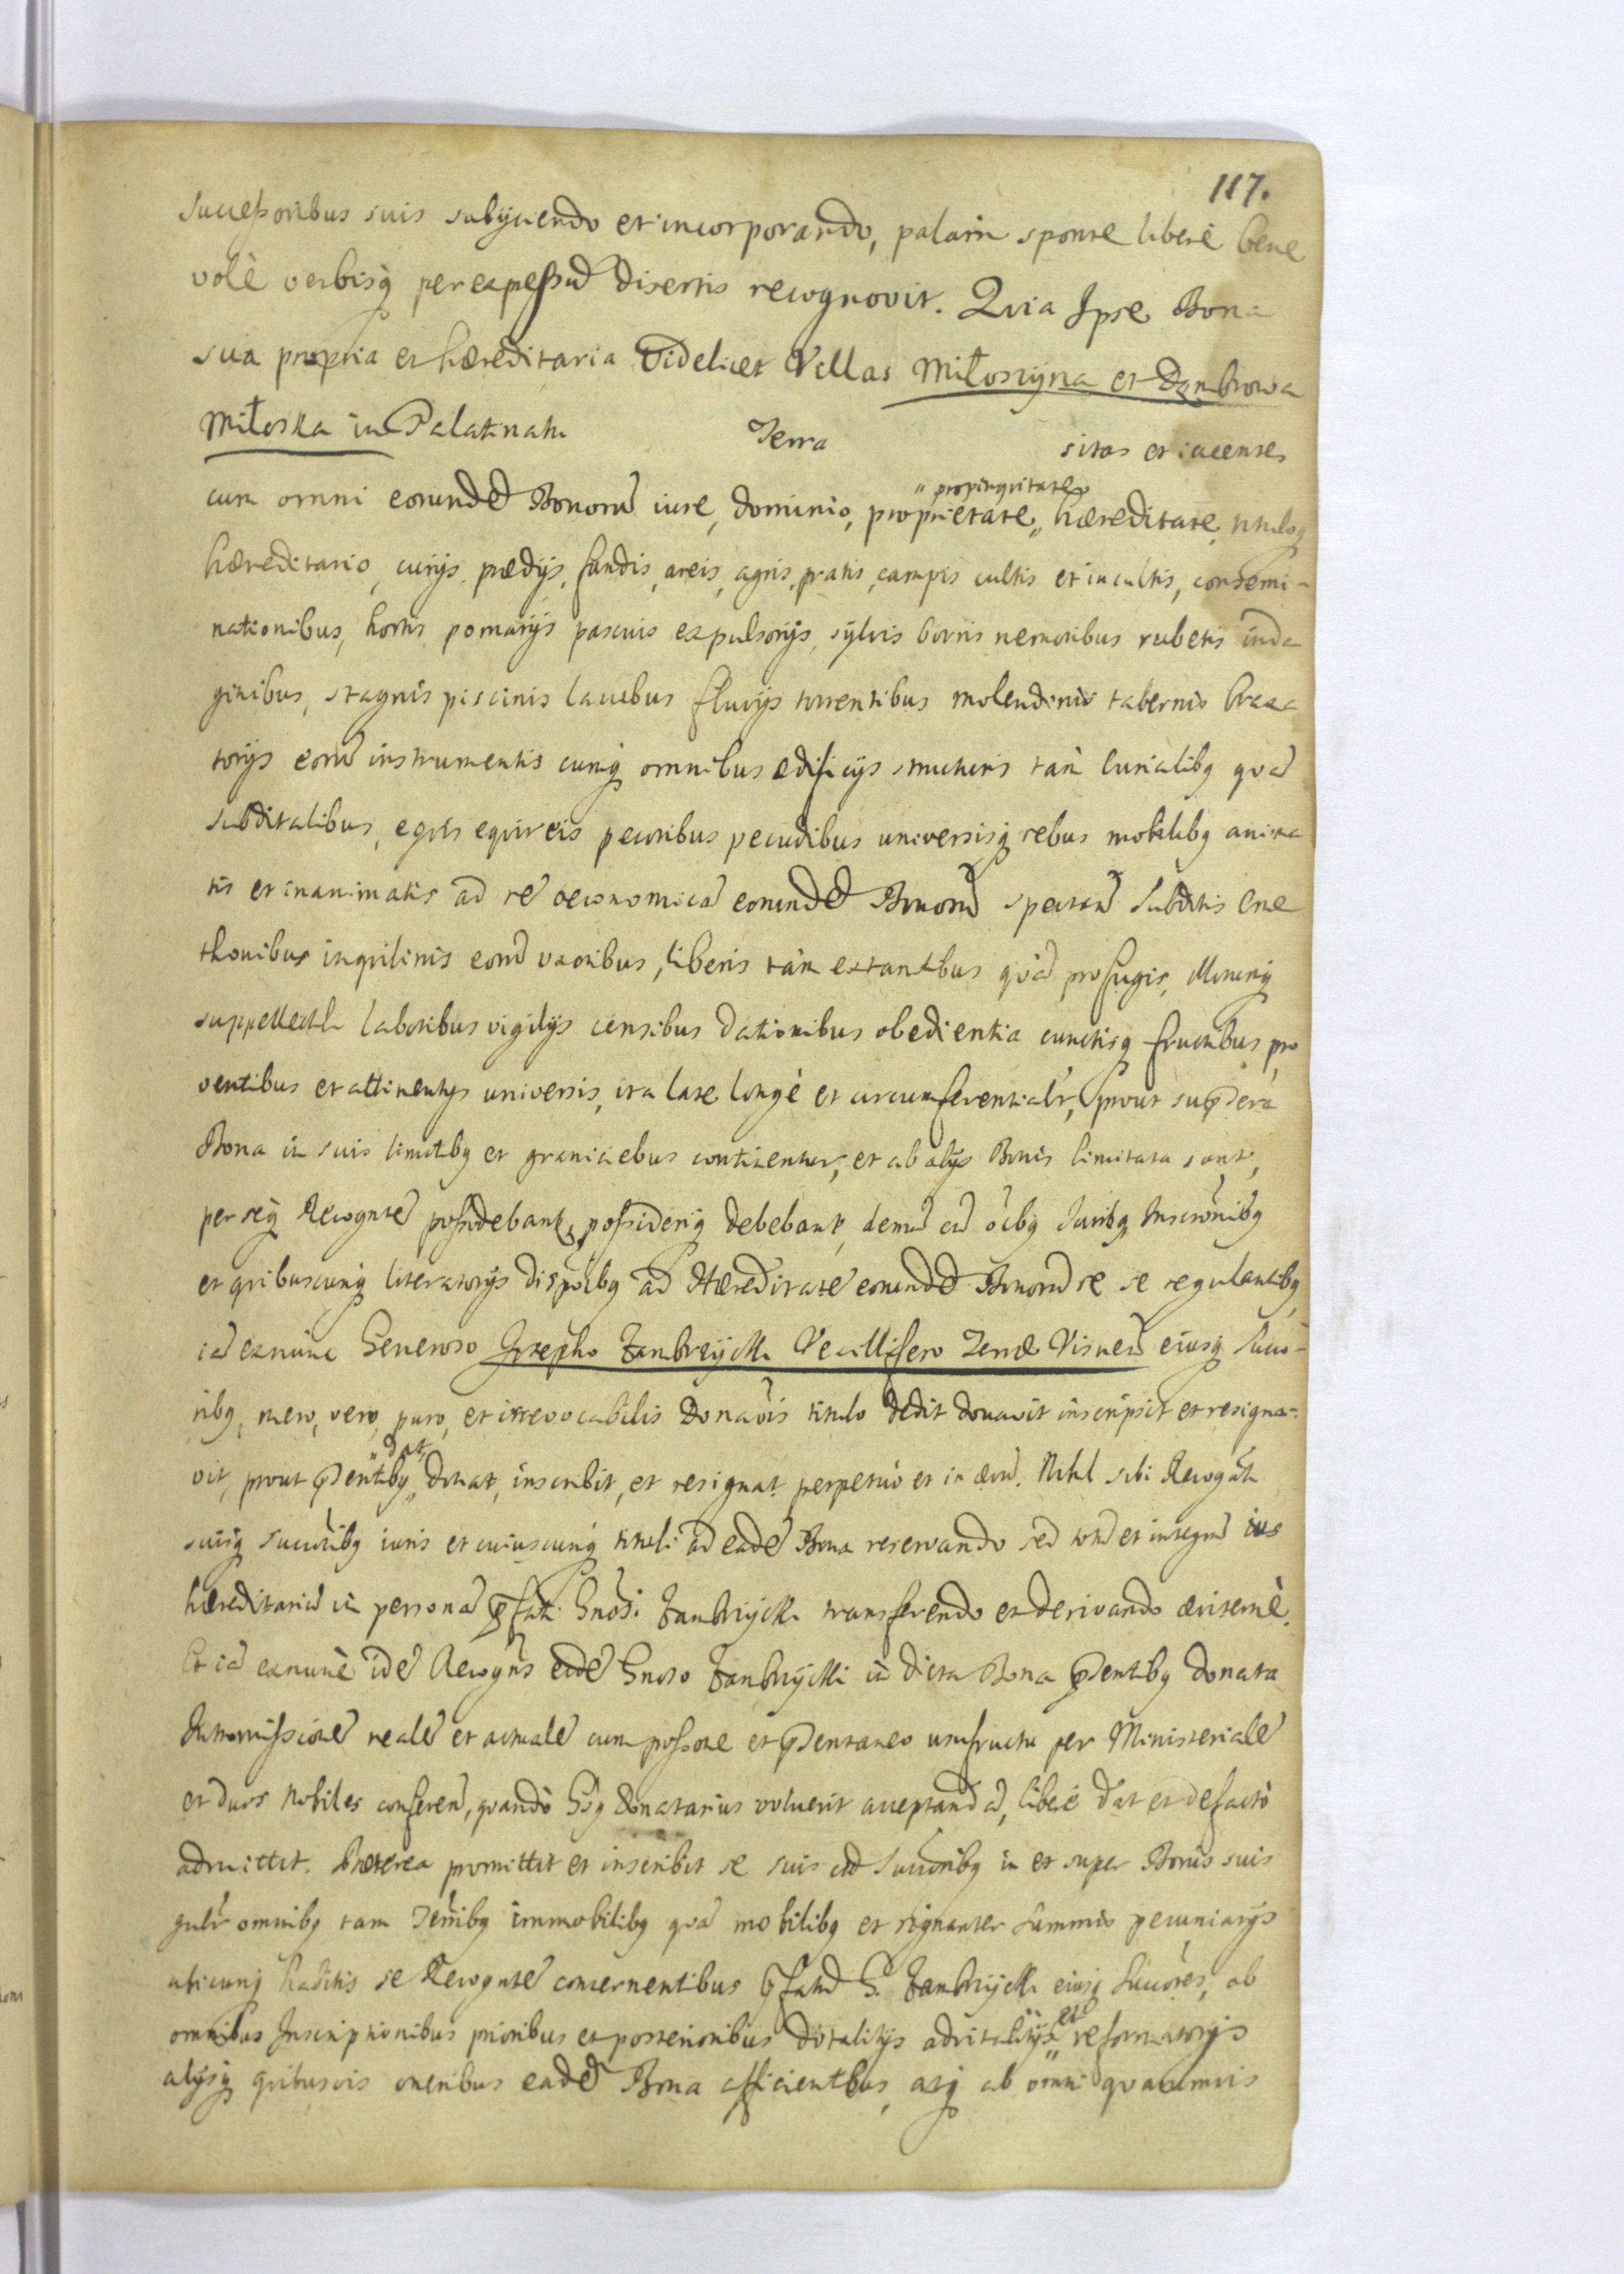 117.
Successoribus suis subijciendo et incorporando, palam sponte liberè bene
volè verbisq̃ per expressũ disertis recognovit. Qvia Ipse Bona
sua propria et hæreditaria Videlicet Villas Miłoszyna et Dąmbrowa
Miłoska in Palatinatu Terra sitas et iacentes
cum omni eorundẽ Bonorũ iure, dominio, proprietate, „propinqvitate„ hæreditate, tituloq̃
hæreditario, curijs, prædijs, fundis, areis, agris, pratis, campis cultis et incultis, consemi-
nationibus, hortis pomarijs pascuis expulsorijs, sylvis borris nemoribus rubetis inda
ginibus, stagnis piscinis lacubus fluvijs torrentibus molendinis tabernis braxa
torijs eorũ instrumentis cumq̃ omnibus ædificijs structuris tàm curialibq qvã
subditalibus, eqvis eqvireis pecoribus pecudibus universisq̃ rebus mobilibq anima
tis et inanimatis ad rẽ oeconomicã eorundẽ Bonorũ spectañ Subditis Cme
thonibus inqvilinis eorũ uxoribus, liberis tàm extantibus qvã profugis, illorumq̃
suppellectili laboribus vigilijs censibus dationibus obedientia cunctisq̃ fructibus, pro
ventibus et attinentijs universis, ita late longè et circumferentialr̃, prout
Bona in suis limitibq et graniciebus continentur, et ab alijs Bonis limitata sunt,
per seq̃ Recogntẽ possidebantr, possideriq̃ debebant, demũ cũ oĩbq Juribq Inscrõnibq
et qvibuscunq̃ literatorijs ad Hæreditatẽ eorundẽ Bonorũ re se regulantibq
iã exnunc Generoso Josepho Zambrzycki Vexillifero Terræ Visneñ eiusq̃ Succo-
ribq, mero, vero, puro, et irrevocabilis Donaõis titulo dedit donavit inscripsit et resigna-
vit, prout p̃entibq, „dat„ donat, inscribit, et resignat perpetuò et in ævũ. Nihl sibi Recogñti
suisq̃ succoribq iuris et cuiuscunq̃ tituli ad eadẽ Bona reservando sed totũ et integrũ ius
hæreditariũ in personã p̃fati Gnosi Zambrzycki transferendo et derivando æviternè.
Et iã exnunc idẽ Recogñs eidẽ Gnoso Zambrzycki in dicta Bona p̃entibq donata
Intromissionẽ realẽ et actualẽ cum possone et p̃entaneo usufructu per Ministerialẽ
et duos Nobiles conferen̄, qvandò Donatarius voluerit acceptandã, liberè dat et defactò
admittit. Præterea promittit et inscribit se suis cũ Succoribq in et super Bonis suis
gnlr̃ omnibq tam Terribq immobilibq qvã mobilibq et signanter Summis pecuniarijs
ubicunq̃ habitis se Recogntẽ concernentibus p̃fatũ G. Zambrzycki eiusq̃ Succores, ab
omnibus Inscriptionibus prioribus et posterioribus dotalitijs advitalitijs „et„ reformatorijs
alijsq̃ qvibusvis oneribus eadẽ Bona afficientibus, atq̃ ab omni qvacumvis